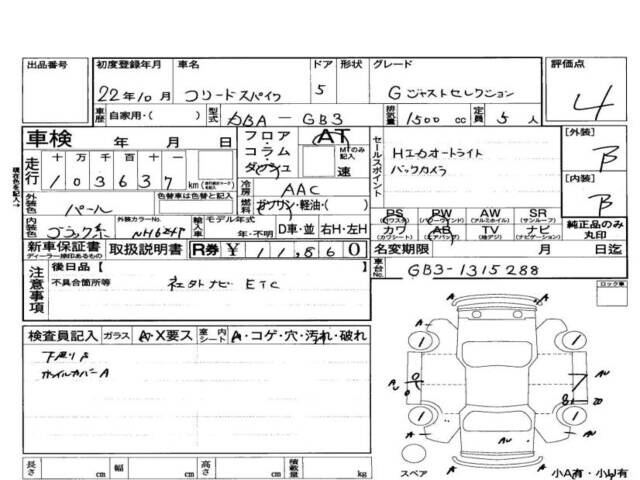 出品番号 初度登録年月 車名 ドア 形状 グレード 評価点
22年10月 フリードスパイク 5 Gジャストセレクション 4
車歴 自家用・( ) 型式 DBA-GB3 排気量 1500cc 定員 5人
車検 年 月 日 フロア・コラム・ダッシュ AT MTのみ記入 速
セールスポイント HIDオートライト
バックカメラ
[外装] B
[内装] B
現在色を記入→
走行 十 万 千 百 十 103637 km
冷房 AAC
燃料 ガソリン・軽油・( )
外装色 パール 色替車は色替と記入
内装色 ブラック系 外装カラーNo. NH624P 輸入車 モデル年式 年・不明 D車・並 右H・左H
PS (パワステ) PW (パワーウィンドウ) AW (アルミホイル) SR (サンルーフ)
カワ (カワシート) AB (エアバッグ) TV (地デジ) ナビ (ナビゲーション)
純正品のみ丸印
新車保証書 ディーラー捺印あるもの 取扱説明書 R券 ¥ 11,860
名変期限 月 日迄
車台No. GB3-1315288
ロック車
注意事項 後日品【 】
不具合箇所等 社外ナビ ETC
検査員記入 ガラス A・X要ス 室内シート A・コゲ・穴・汚れ・破れ
下廻りS
ホイルカバーA
A A
1 1
A AU
1 1
AU
A A
スペア 小A有・小U有
長さ cm 幅 cm 高さ cm 積載量 kg